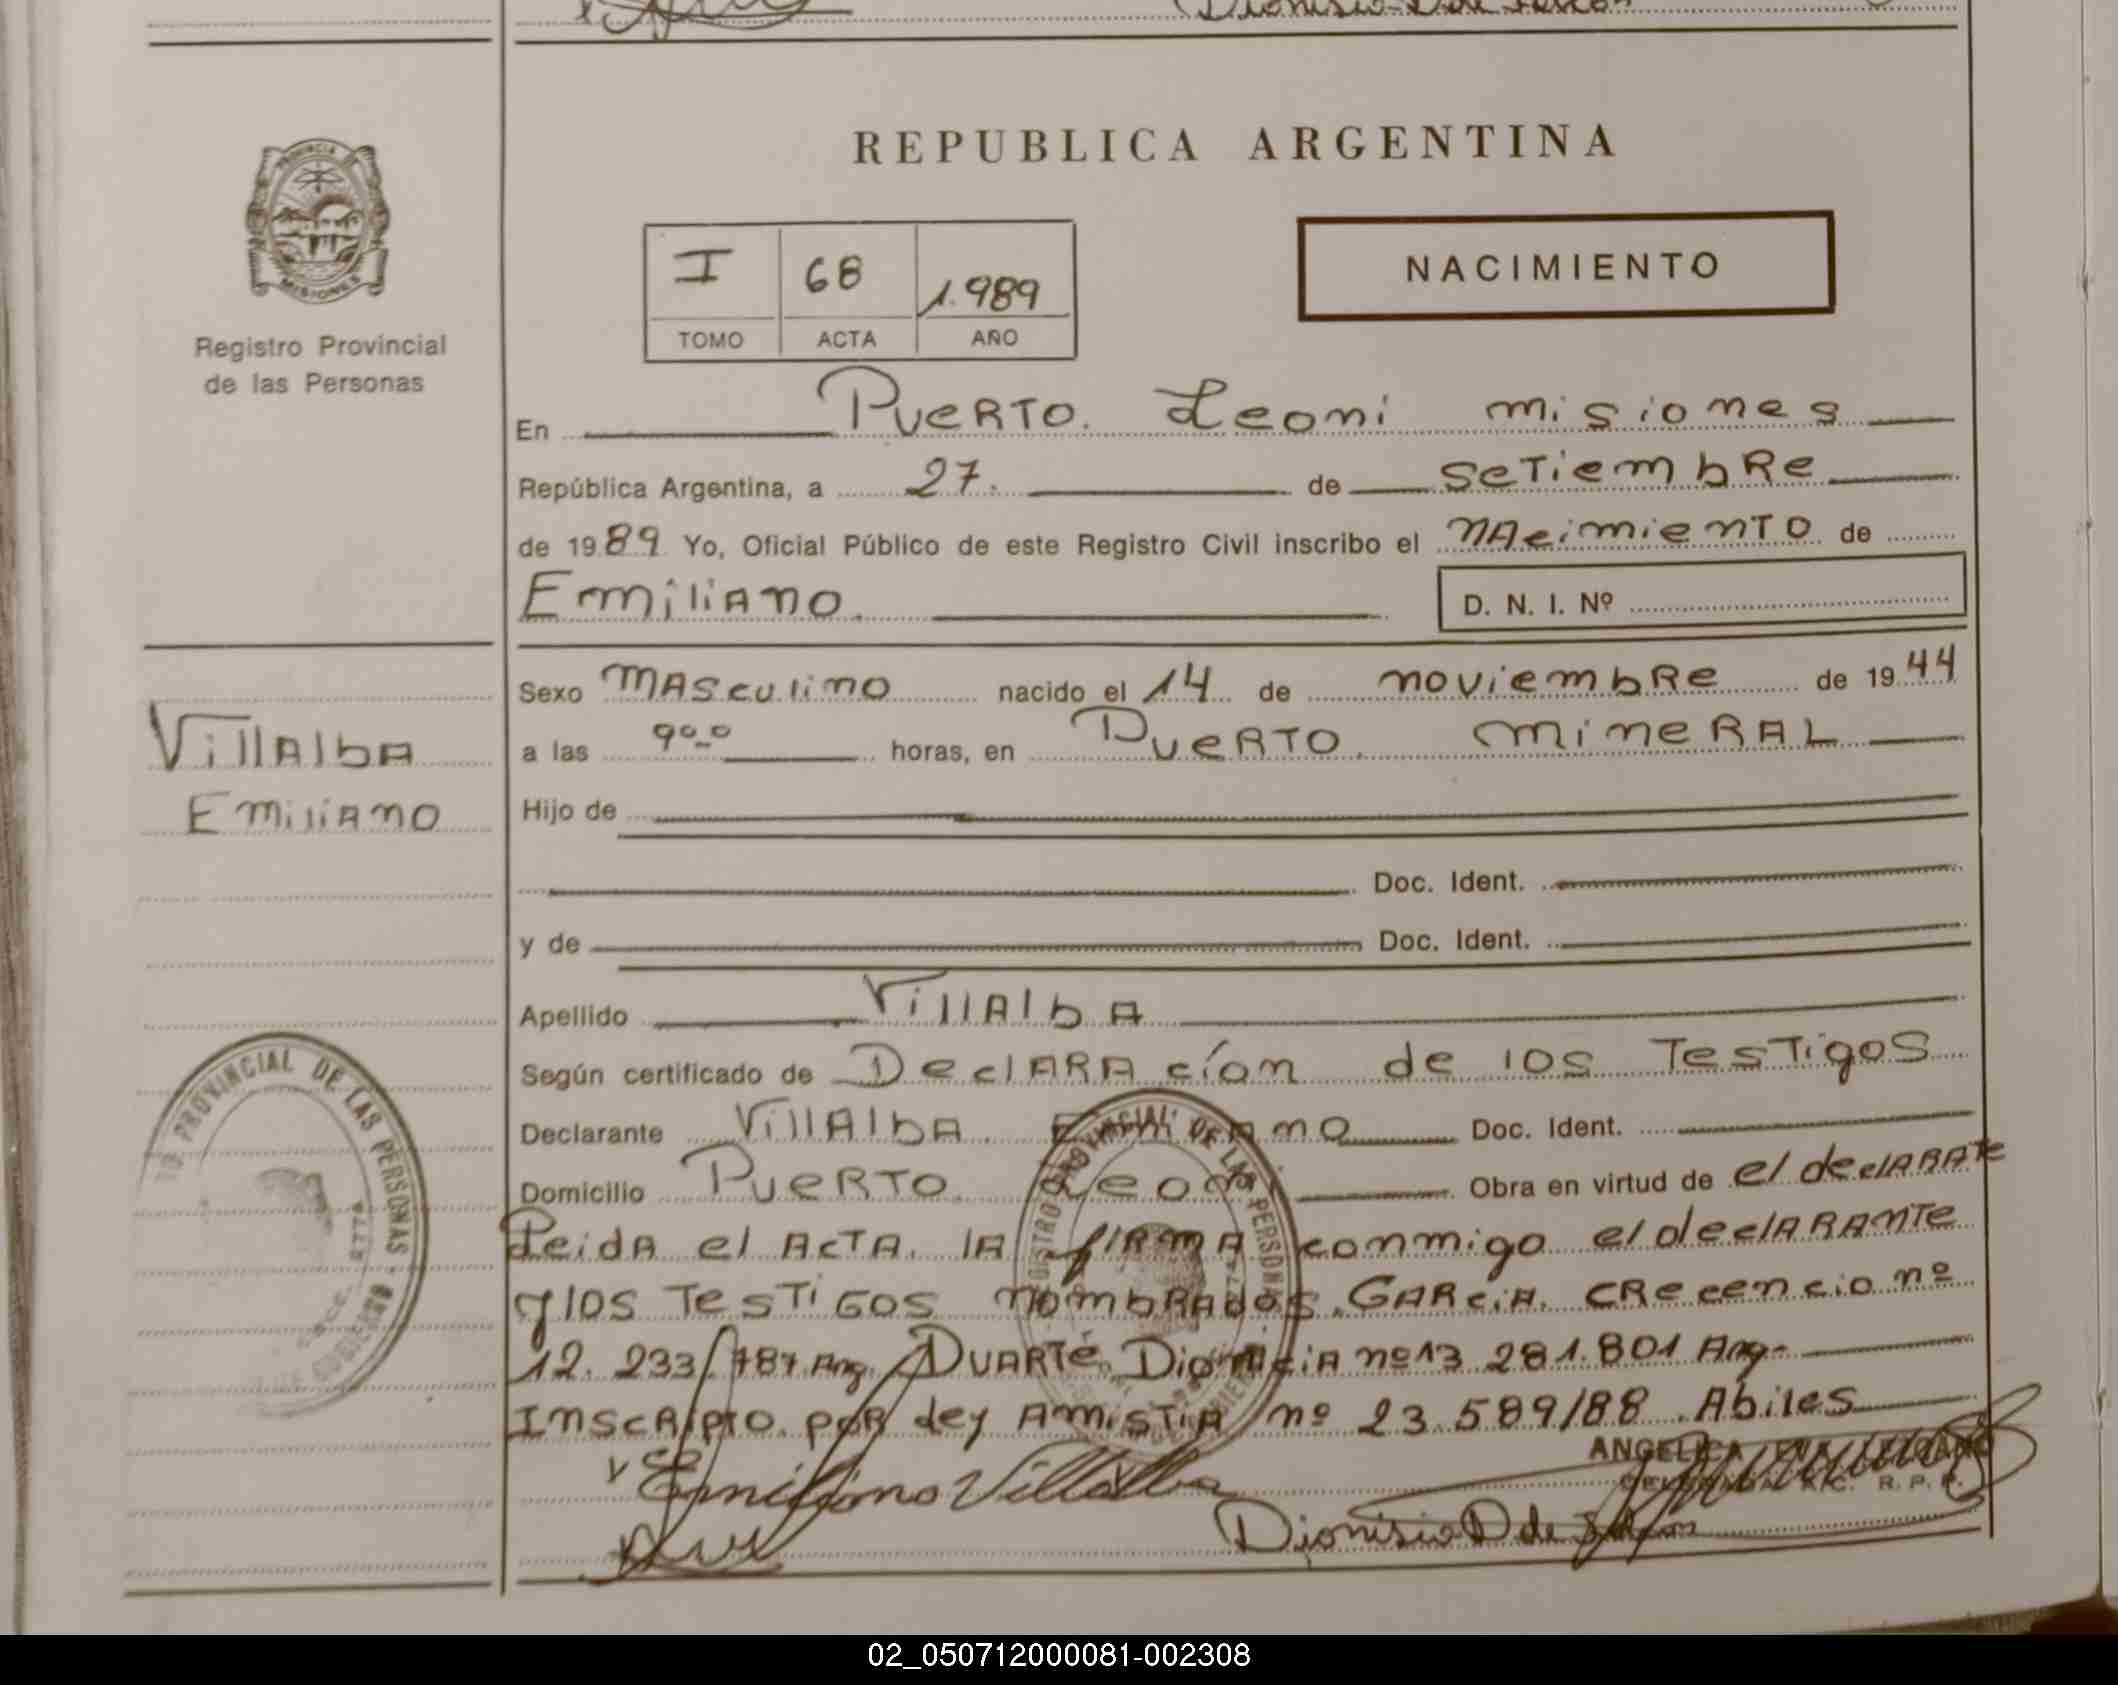 Dionisio D de
REPUBLICA ARGENTINA
PROVINCIA DE
MISIONES
Registro Provincial
de las Personas
I 68 1.989
TOMO ACTA AÑO
NACIMIENTO
En Puerto. Leoni misiones
República Argentina, a 27. de setiembre
de 1989 Yo, Oficial Público de este Registro Civil inscribo el nacimiento de
Emiliano.
D. N. I. Nº
Sexo masculino nacido el 14 de noviembre de 1944
a las 9oo horas, en Puerto. mineral
Villalba
Emiliano
Hijo de
Doc. Ident.
y de Doc. Ident.
Apellido Villalba
Según certificado de Declaración de los Testigos
Declarante Villalba Emiliano Doc. Ident.
Domicilio Puerto Leoni Obra en virtud de el declarate
Leida el acta. la firma conmigo el declarante
y los testigos nombrados. Garcia. Crecencio nº
12.233/787 Arg. Duarte. Dionicia nº 13 281.801 Arg-
Inscripto. por ley Amistia nº 23.589/88. Abiles
Emiliano Villalba
ANGELICA
DELEGADA R.C. R.P.P.
Dionisio D de
PROVINCIAL DE LAS PERSONAS
REGISTRO PROVINCIAL DE LAS PERSONAS
02_050712000081-002308